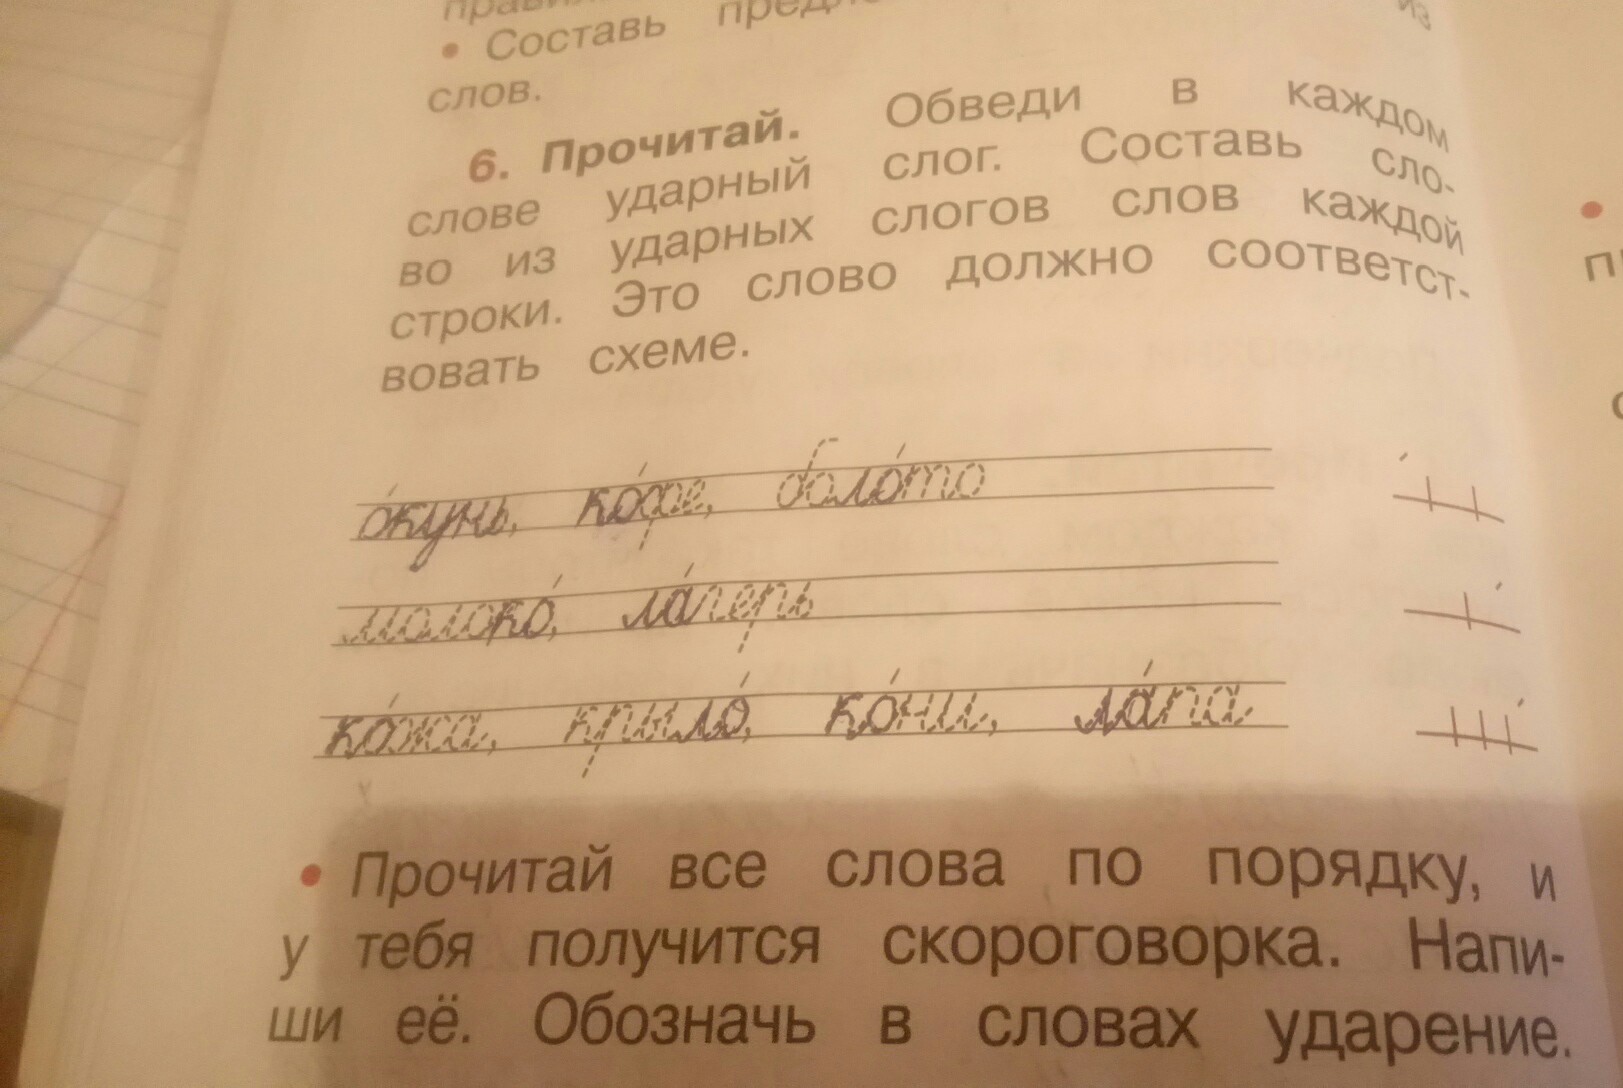 • Составь
слов.
6. Прочитай. Обведи в каждом
слове ударный слог. Составь сло-
во из ударных слогов слов каждой
строки. Это слово должно соответст-
вовать схеме.
о́кунь, ко́фе, боло́то
молоко́, ла́герь
ко́жа, крыло́, ко́ни, ла́па
• Прочитай все слова по порядку, и
у тебя получится скороговорка. Напи-
ши её. Обозначь в словах ударение.